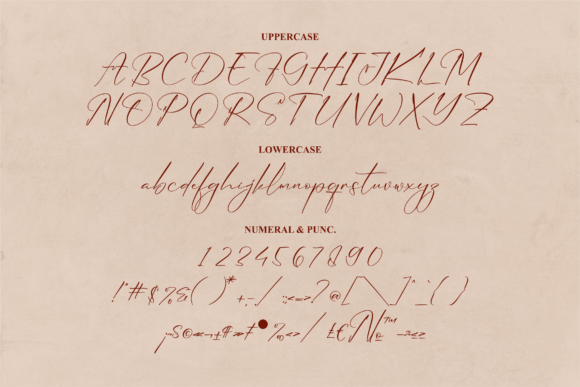 UPPERCASE
ABCDEFGHIJKLM
NOPQRSTUVWXYZ
LOWERCASE
abcdefghijklmnopqrstuvwxyz
NUMERAL & PUNC.
1234567890
!"#$%&()*+-./:;<=>?@[\]^_{}